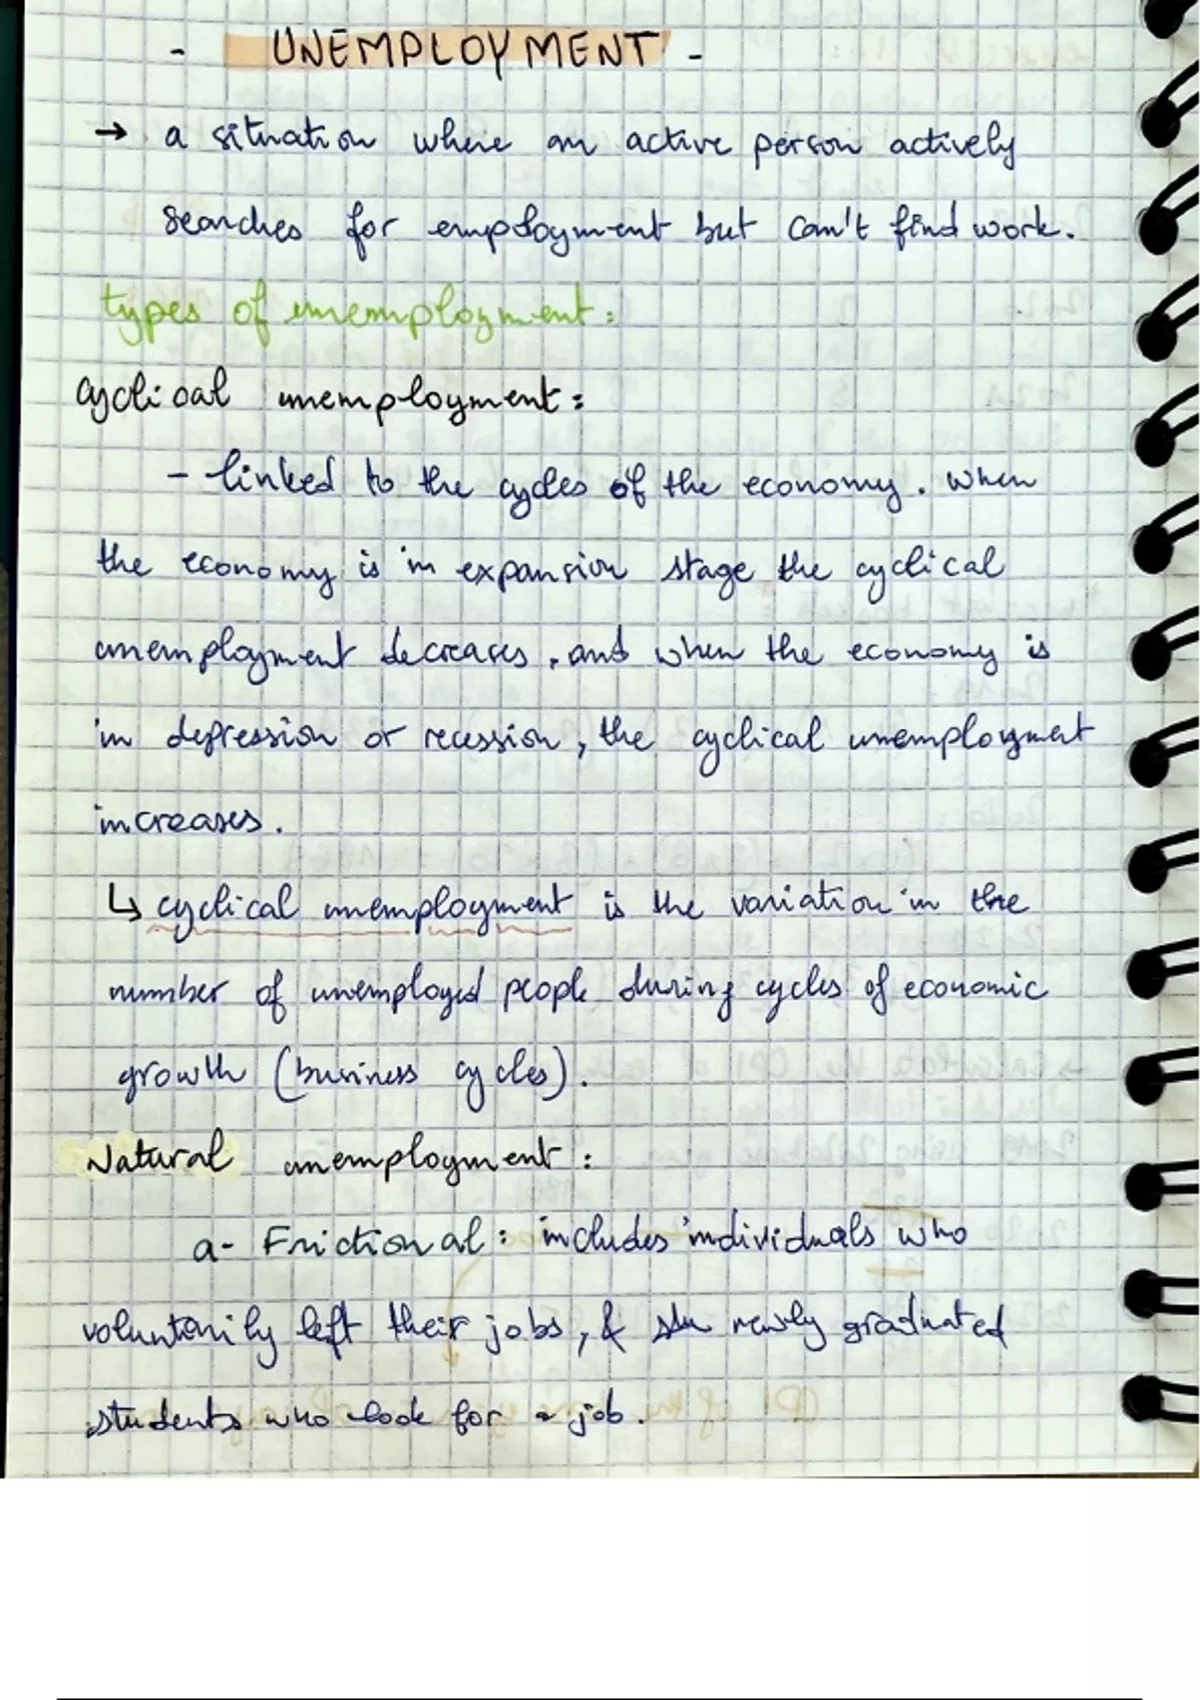 - UNEMPLOYMENT -
→ a situation where an active person actively
searches for employment but can't find work.
types of unemployment:
cyclical unemployment:
- linked to the cycles of the economy. When
the economy is in expansion stage the cyclical
unemployment decreases, and when the economy is
in depression or recession, the cyclical unemployment
increases.
↳ cyclical unemployment is the variation in the
number of unemployed people during cycles of economic
growth (business cycles).
Natural unemployment:
a- Frictional: includes individuals who
voluntarily left their jobs, & newly graduated
students who look for a job.